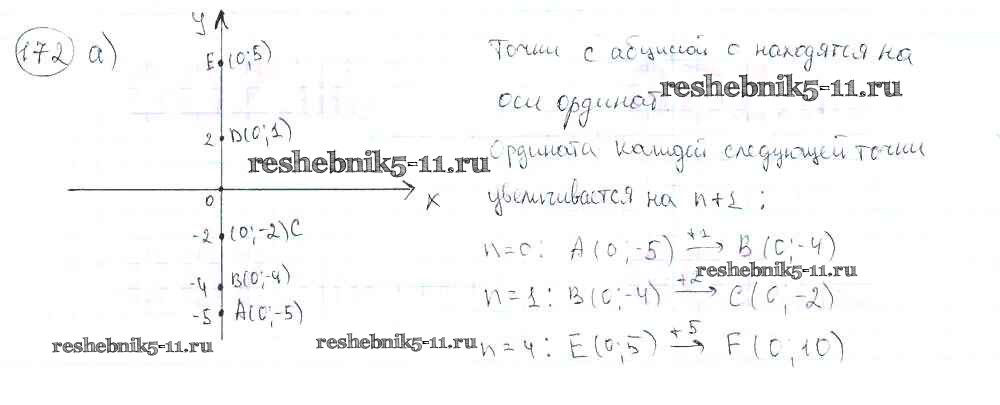 172 а)
y
E (0;5)
2 D(0;1)
0
x
-2 (0;-2)C
-4 B(0;-4)
-5 A(0;-5)
Точки с абциссой 0 находятся на
оси ординат
Ордината каждой следующей точки
увеличивается на n+1;
n=0: A(0;-5) +1 → B(0;-4)
n=1: B(0;-4) +2 → C(0;-2)
n=4: E(0;5) +5 → F(0;10)
reshebnik5-11.ru
reshebnik5-11.ru
reshebnik5-11.ru
reshebnik5-11.ru
reshebnik5-11.ru